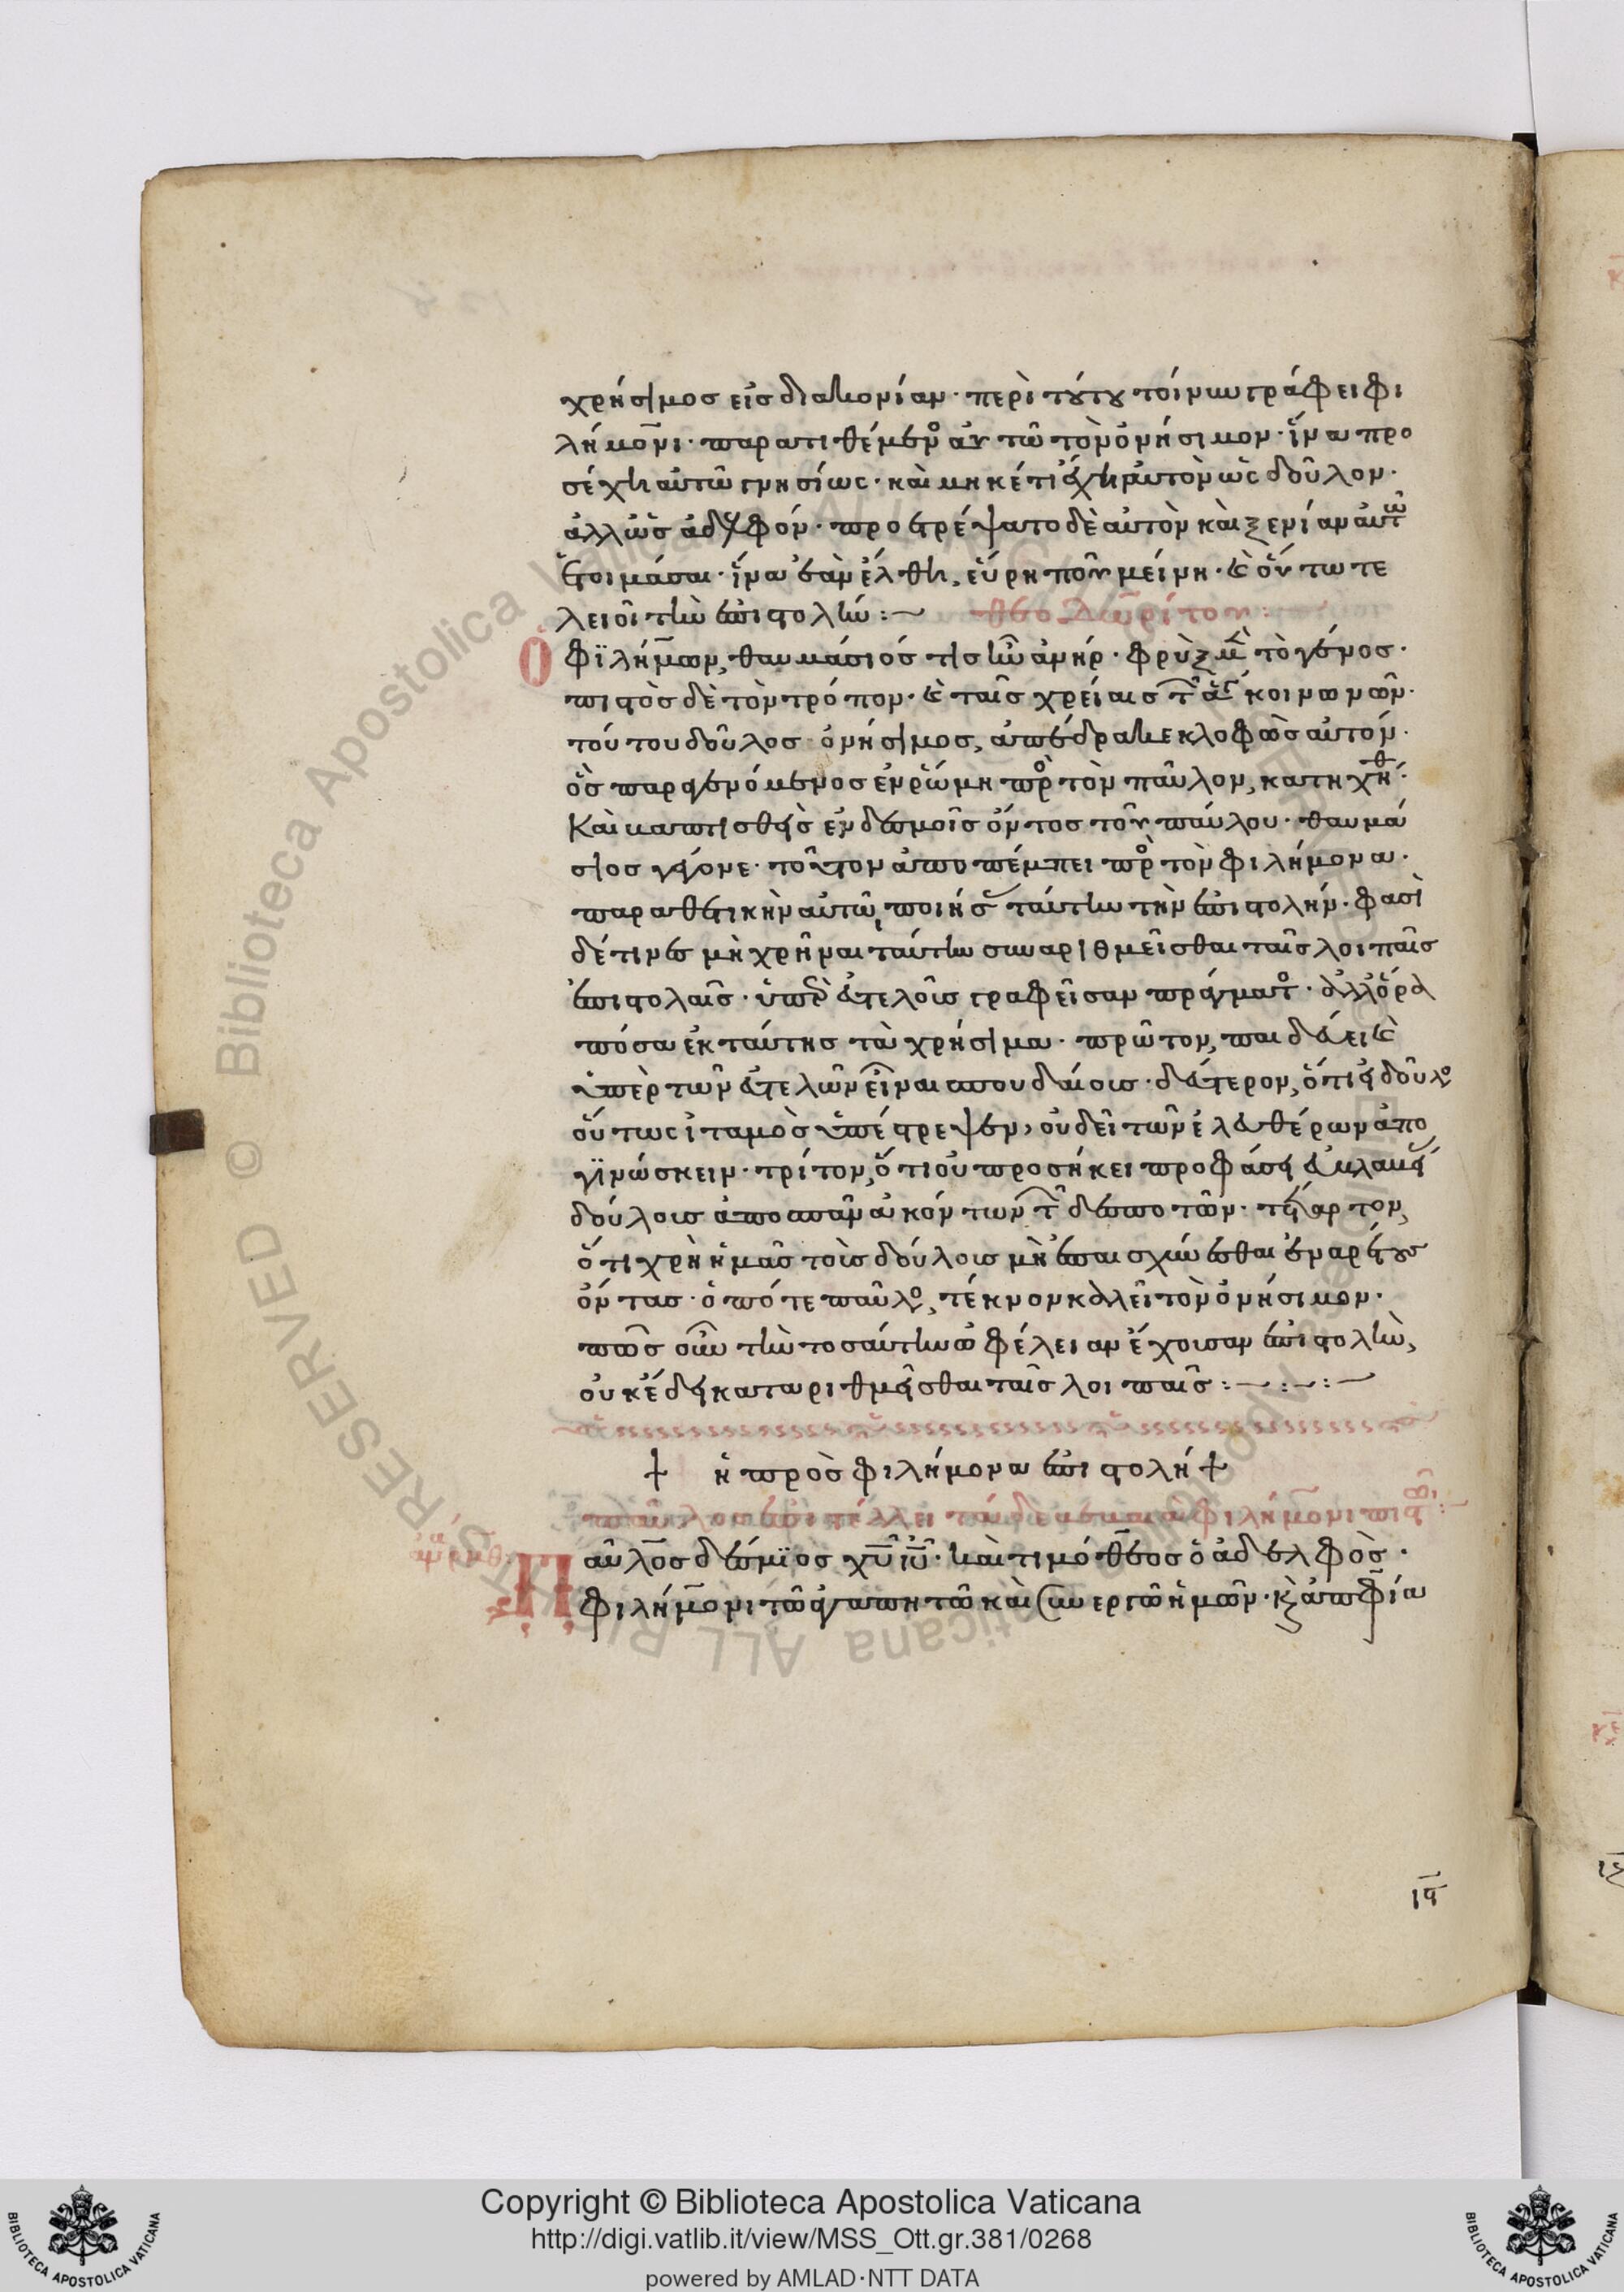 χρήσιμος εἰς διακονίαν· περὶ τούτου τοίνυν γράφει φι
λήμονι· παρατιθέμενος αὐτῶ τὸν ὀνήσιμον· ἵνα προ
σέχη αὐτῶ γνησίως· καὶ μηκέτι ἔχη αὐτὸν ὡς δοῦλον·
ἀλλ ὡς ἀδελφόν· προστρέψατο δὲ αὐτὸν καὶ ξενίαν αὐτῶ
ἑτοιμάσαι· ἵνα ἐὰν ἔλθη, εὕρη ποῦ μείνη· καὶ οὕτω τε
λειοῖ τὴν ἐπιστολήν :~ θεοδωρίτου :
Ὁ φϊλήμων, θαυμάσιός τις ἦν ἀνήρ· φρὺξ μὲν τὸ γένος·
πιστὸς δὲ τὸν τρόπον· καὶ ταῖς χρείαις τῶν ἁγίων κοινωνῶν·
τούτου δοῦλος ὀνήσιμος, ἀπέδρακε κλοφῶς αὐτόν·
ὃς παραγενόμενος ἐν ῥώμη πρὸς τὸν παῦλον, κατηχήθη·
Καὶ βαπτισθεὶς ἐν δεσμοῖς ὄντος τοῦ παύλου· θαυμά
σιος γέγονε· τοῦτον ἀποπέμπει πρὸς τὸν φιλήμονα·
παραθετικὴν αὐτῶ ποιήσας ταύτην τὴν ἐπιστολήν· φασὶ
δέ τινες μὴ χρῆναι ταύτην συναριθμεῖσθαι ταῖς λοιπαῖς
ἐπιστολαῖς· ὑπὲρ εὐτελοῦς γραφεῖσαν πράγματος· ἀλλ ὅρα
πόσα ἐκ ταύτης τὰ χρήσιμα· πρῶτον, παιδεύει καὶ
ὑπὲρ τῶν εὐτελῶν εἶναι σπουδαίοις· δεύτερον, ὅτι εἰ δοῦλος
οὕτως ἰταμὸς ὑπέστρεψεν, οὐ δεῖ τῶν ἐλευθέρων ἀπο
γϊνώσκειν· τρίτον, ὅτι οὐ προσήκει προφάσει εὐλαβείας
δούλοις ἀποσπᾶν ἀκόντων τῶν δεσποτῶν· τέταρτον,
ὅτι χρὴ ἡμᾶς τοῖς δούλοις μὴ ἐπαισχύνεσθαι ἐναρέτους
ὄντας· ὁπότε παῦλος, τέκνον καλεῖ τὸν ὀνήσιμον·
πῶς οὖν τὴν τοσαύτην ὠφέλειαν ἔχουσαν ἐπιστολὴν,
οὐκ ἔδει καταριθμεῖσθαι ταῖς λοιπαῖς :~ :~ :~
+ ἡ πρὸς φιλήμονα ἐπιστολή +
παῦλος ἐπιστέλλει τάδε βέβαια φιλήμονι πιστῶ
Παῦλος δέσμϊος χυ ιυ· καὶ τιμόθεος ὁ ἀδελφὸς·
φιλήμονι τῶ ἀγαπητῶ καὶ συνεργῶ ἡμῶν· κὶ ἀπφία
ιϛ
Copyright © Biblioteca Apostolica Vaticana
http://digi.vatlib.it/view/MSS_Ott.gr.381/0268
powered by AMLAD·NTT DATA